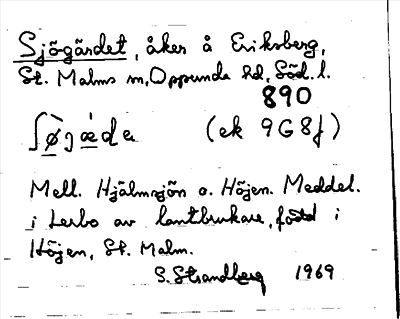 Sjögärdet, åker å Eriksberg,
St. Malms sn, Oppunda hd, Söd. l.
890
ʃø̀jæ̀da (ek 9G8f)
Mell. Hjälmsjön o. Höjen. Meddel.
i Lerbo av lantbrukare, född i
Höjen, St. Malm.
S. Strandberg 1969